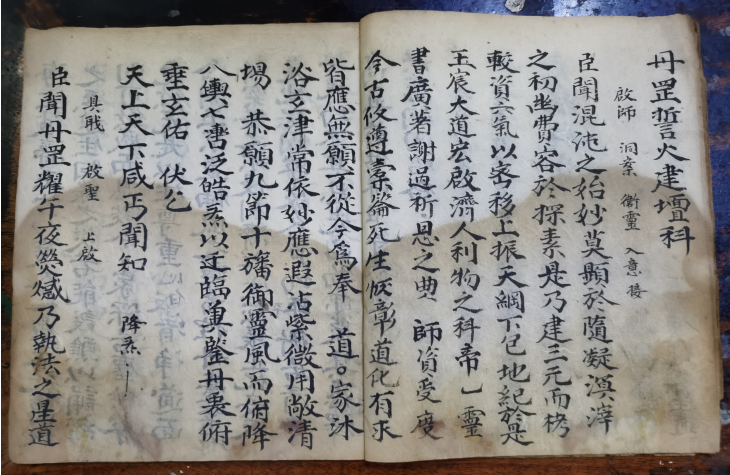 丹罡誓火建壇科
啟師 洞案 衛靈 入意後
臣聞混沌之始妙莫顯於隨凝溟滓
之初幽賾容於探索是乃建三元而榜
較資六氣以密移上振天綱下包地紀於是
玉宸大道宏啟濟人利物之科帝一靈
書廣著謝過祈恩之典 師資受度
今古攸遵橐籥死生恢彰道化有求
皆應無願不從今為奉 道○家沐
浴玄津常依妙應遐沾紫微用敞清
場 恭願九節十旛御靈風而俯降
八輿七寶泛皓炁以迂臨莫鑒丹衷俯
垂玄佑 伏乞
天上天下咸丐聞知 降炁
具職 啟聖 上啟
臣聞丹罡耀千夜熒爓乃執法之星道